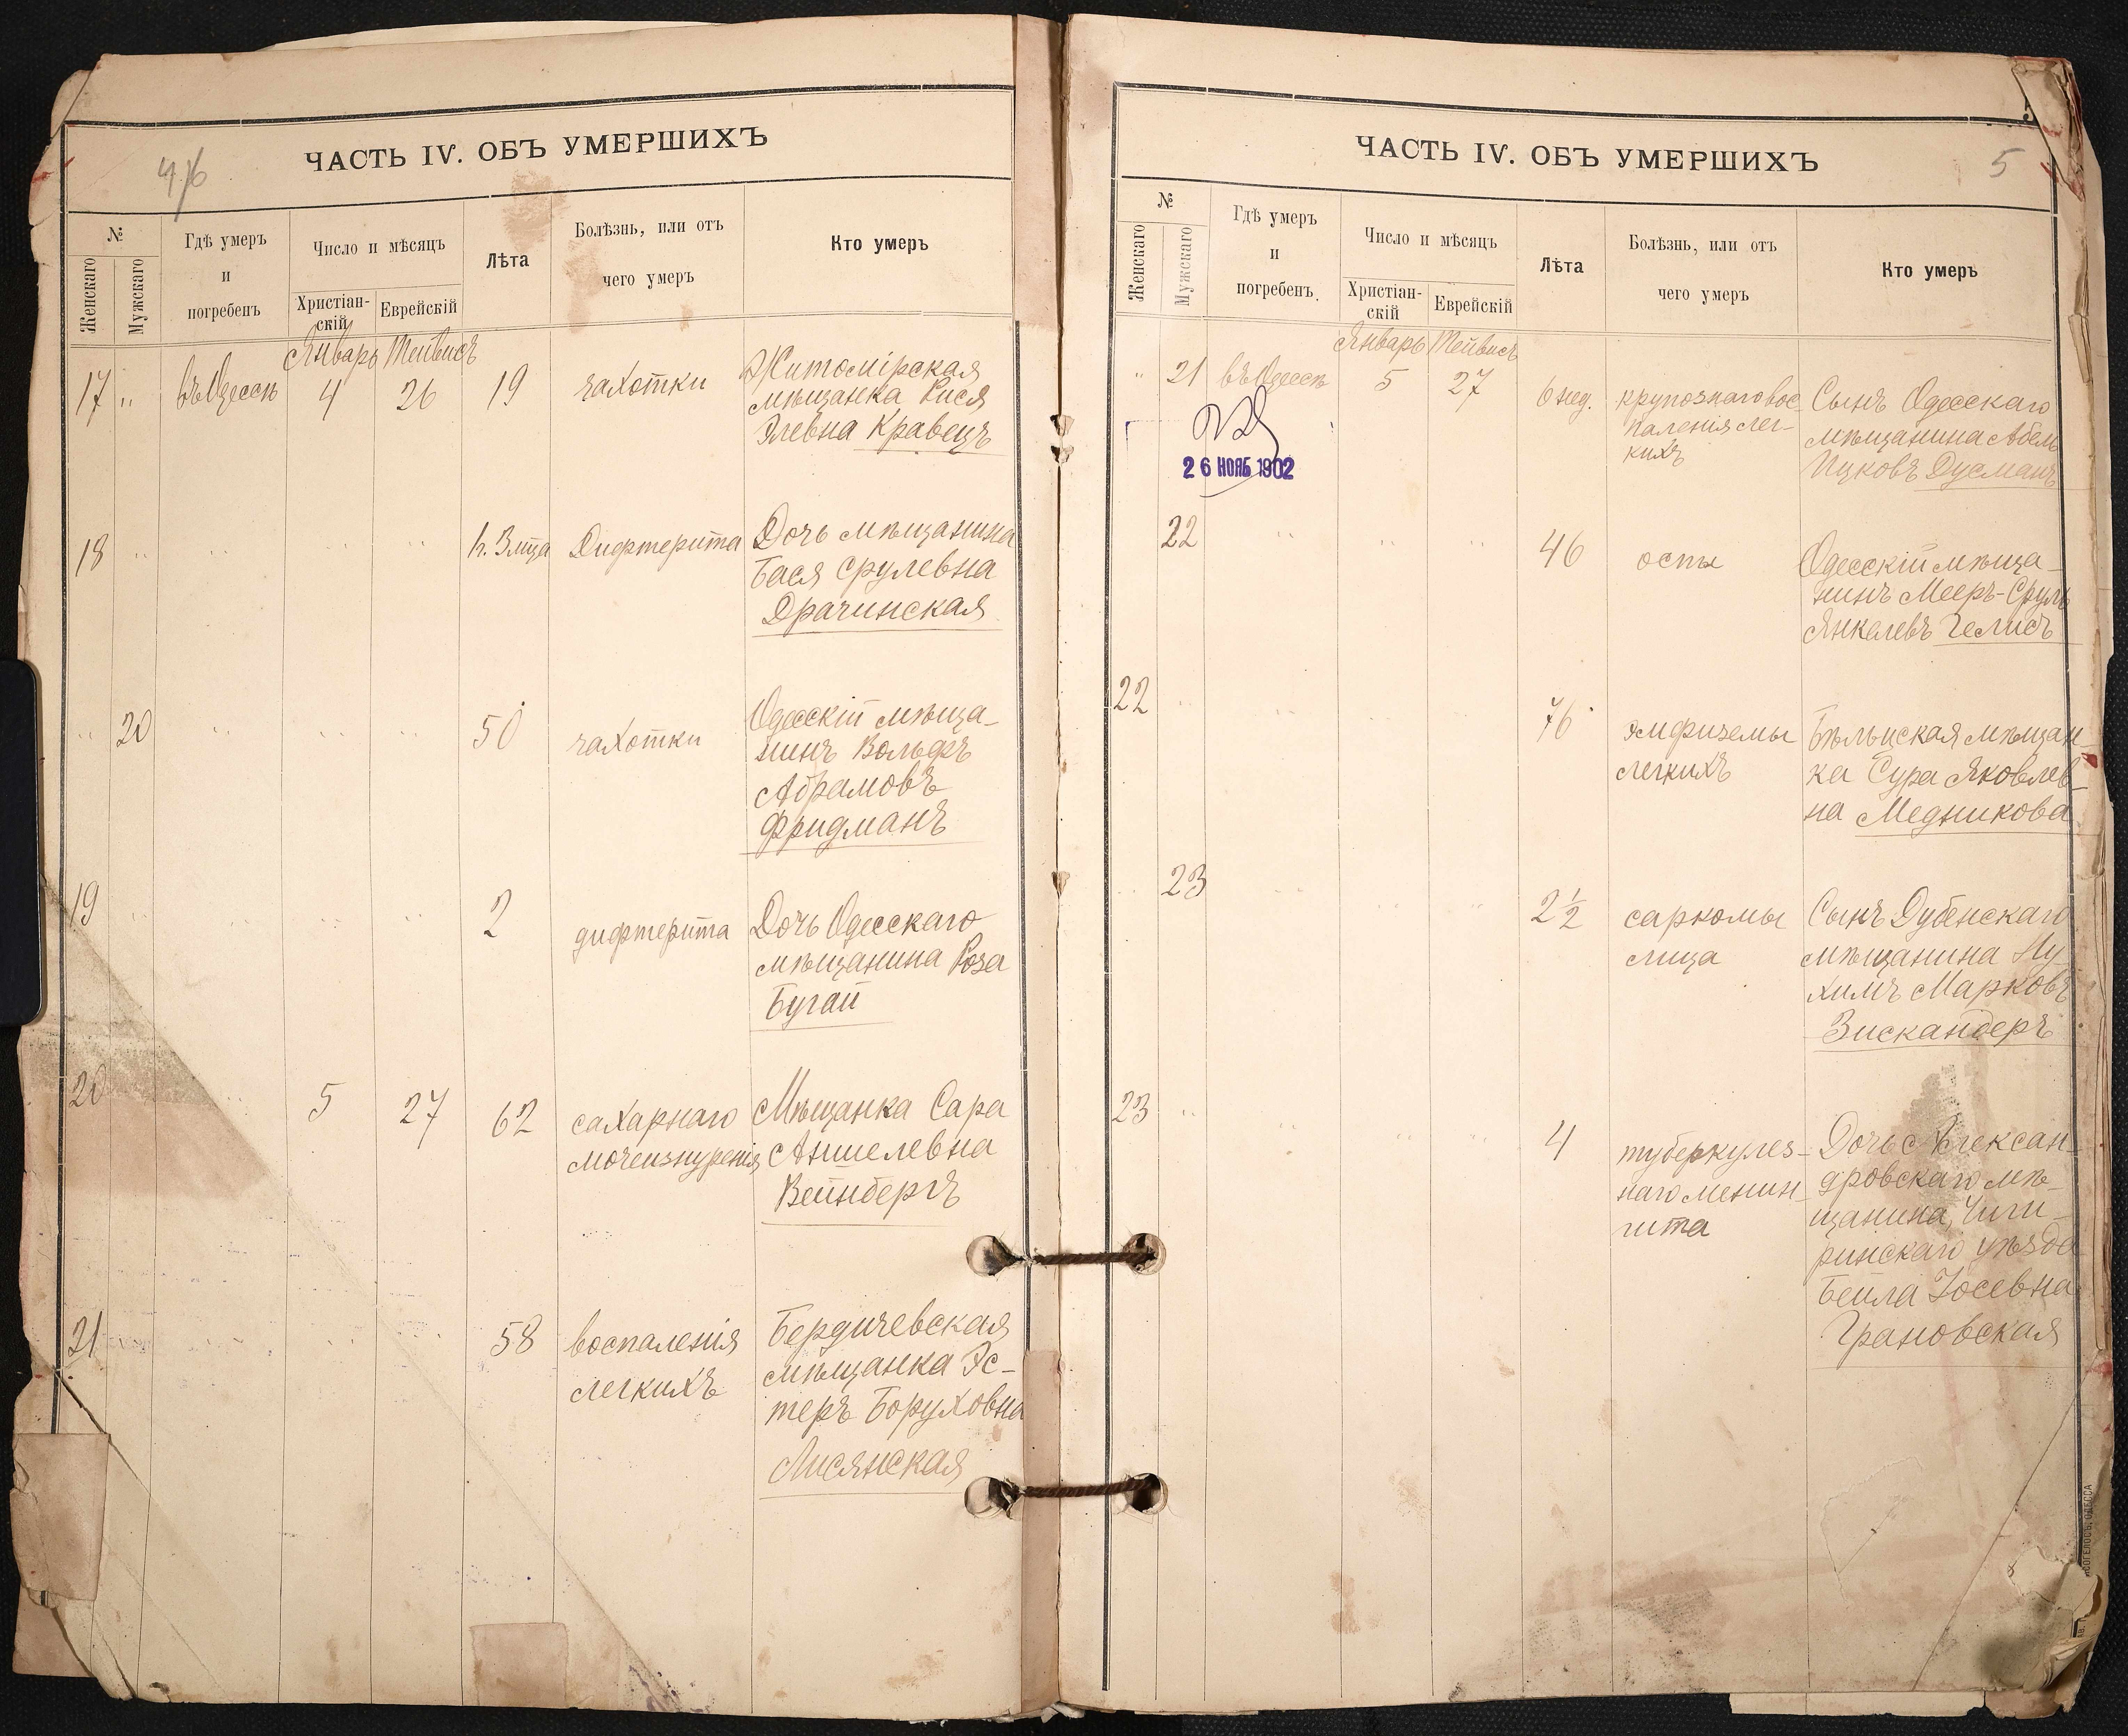 ЧАСТЬ IV. ОБЪ УМЕРШИХЪ
№
Женскаго
Мужскаго
Гдѣ умеръ
и
погребенъ
Число и мѣсяцъ
Христіан-
скій
Еврейскій
Лѣта
Болѣзнь, или отъ
чего умеръ
Кто умеръ
Январь Тейвисъ
17 " въ Одессѣ 4 26 19 чахотки Житомірская
мѣщанка Рися
Элевна Кравецъ
18 " " " " Дифтерита Дочь мѣщанина
Бася Срулевна
Драчинская
" 20 " " " 50 чахотки Одесскій мѣща-
нинъ Вольфъ
Абрамовъ
Фридманъ
19 " " " " 2 дифтерита Дочь Одесскаго
мѣщанина Роза
Бугай
20 5 27 62 сахарнаго Мѣщанка Сара
мочеизнуренія Аншелевна
Вейнбергъ
21 " " " 58 воспаленія Бердичевская
легкихъ мѣщанка Эс-
теръ Боруховна
Лисянская
ЧАСТЬ IV. ОБЪ УМЕРШИХЪ
5
№
Женскаго
Мужскаго
Гдѣ умеръ
и
погребенъ
Число и мѣсяцъ
Христіан-
скій
Еврейскій
Лѣта
Болѣзнь, или отъ
чего умеръ
Кто умеръ
Январь Тейвисъ
" 21 въ Одессѣ 5 27 6 нед. крупознаго вос- Сынъ Одесскаго
паленія лег- мѣщанина Абель
кихъ Ицковъ Дусманъ
26 НОЯБ 1902
22 " " " 46 оспы Одесскій мѣща-
нинъ Мееръ-Сруль
Янкелевъ Гелисъ
22 " " " " 76 эмфиземы Бѣльцская мѣщан-
легкихъ ка Сура Яковлев-
на Медникова
" 23 " " " 2½ саркомы Сынъ Дубенскаго
лица мѣщанина Ну-
химъ Марковъ
Зискандеръ
23 " " " " 4 туберкулез- Дочь Алексан-
наго менин- дровскаго мѣ-
гита щанина, Чиги-
ринскаго уѣзда
Бейла Іосевна
Грановская